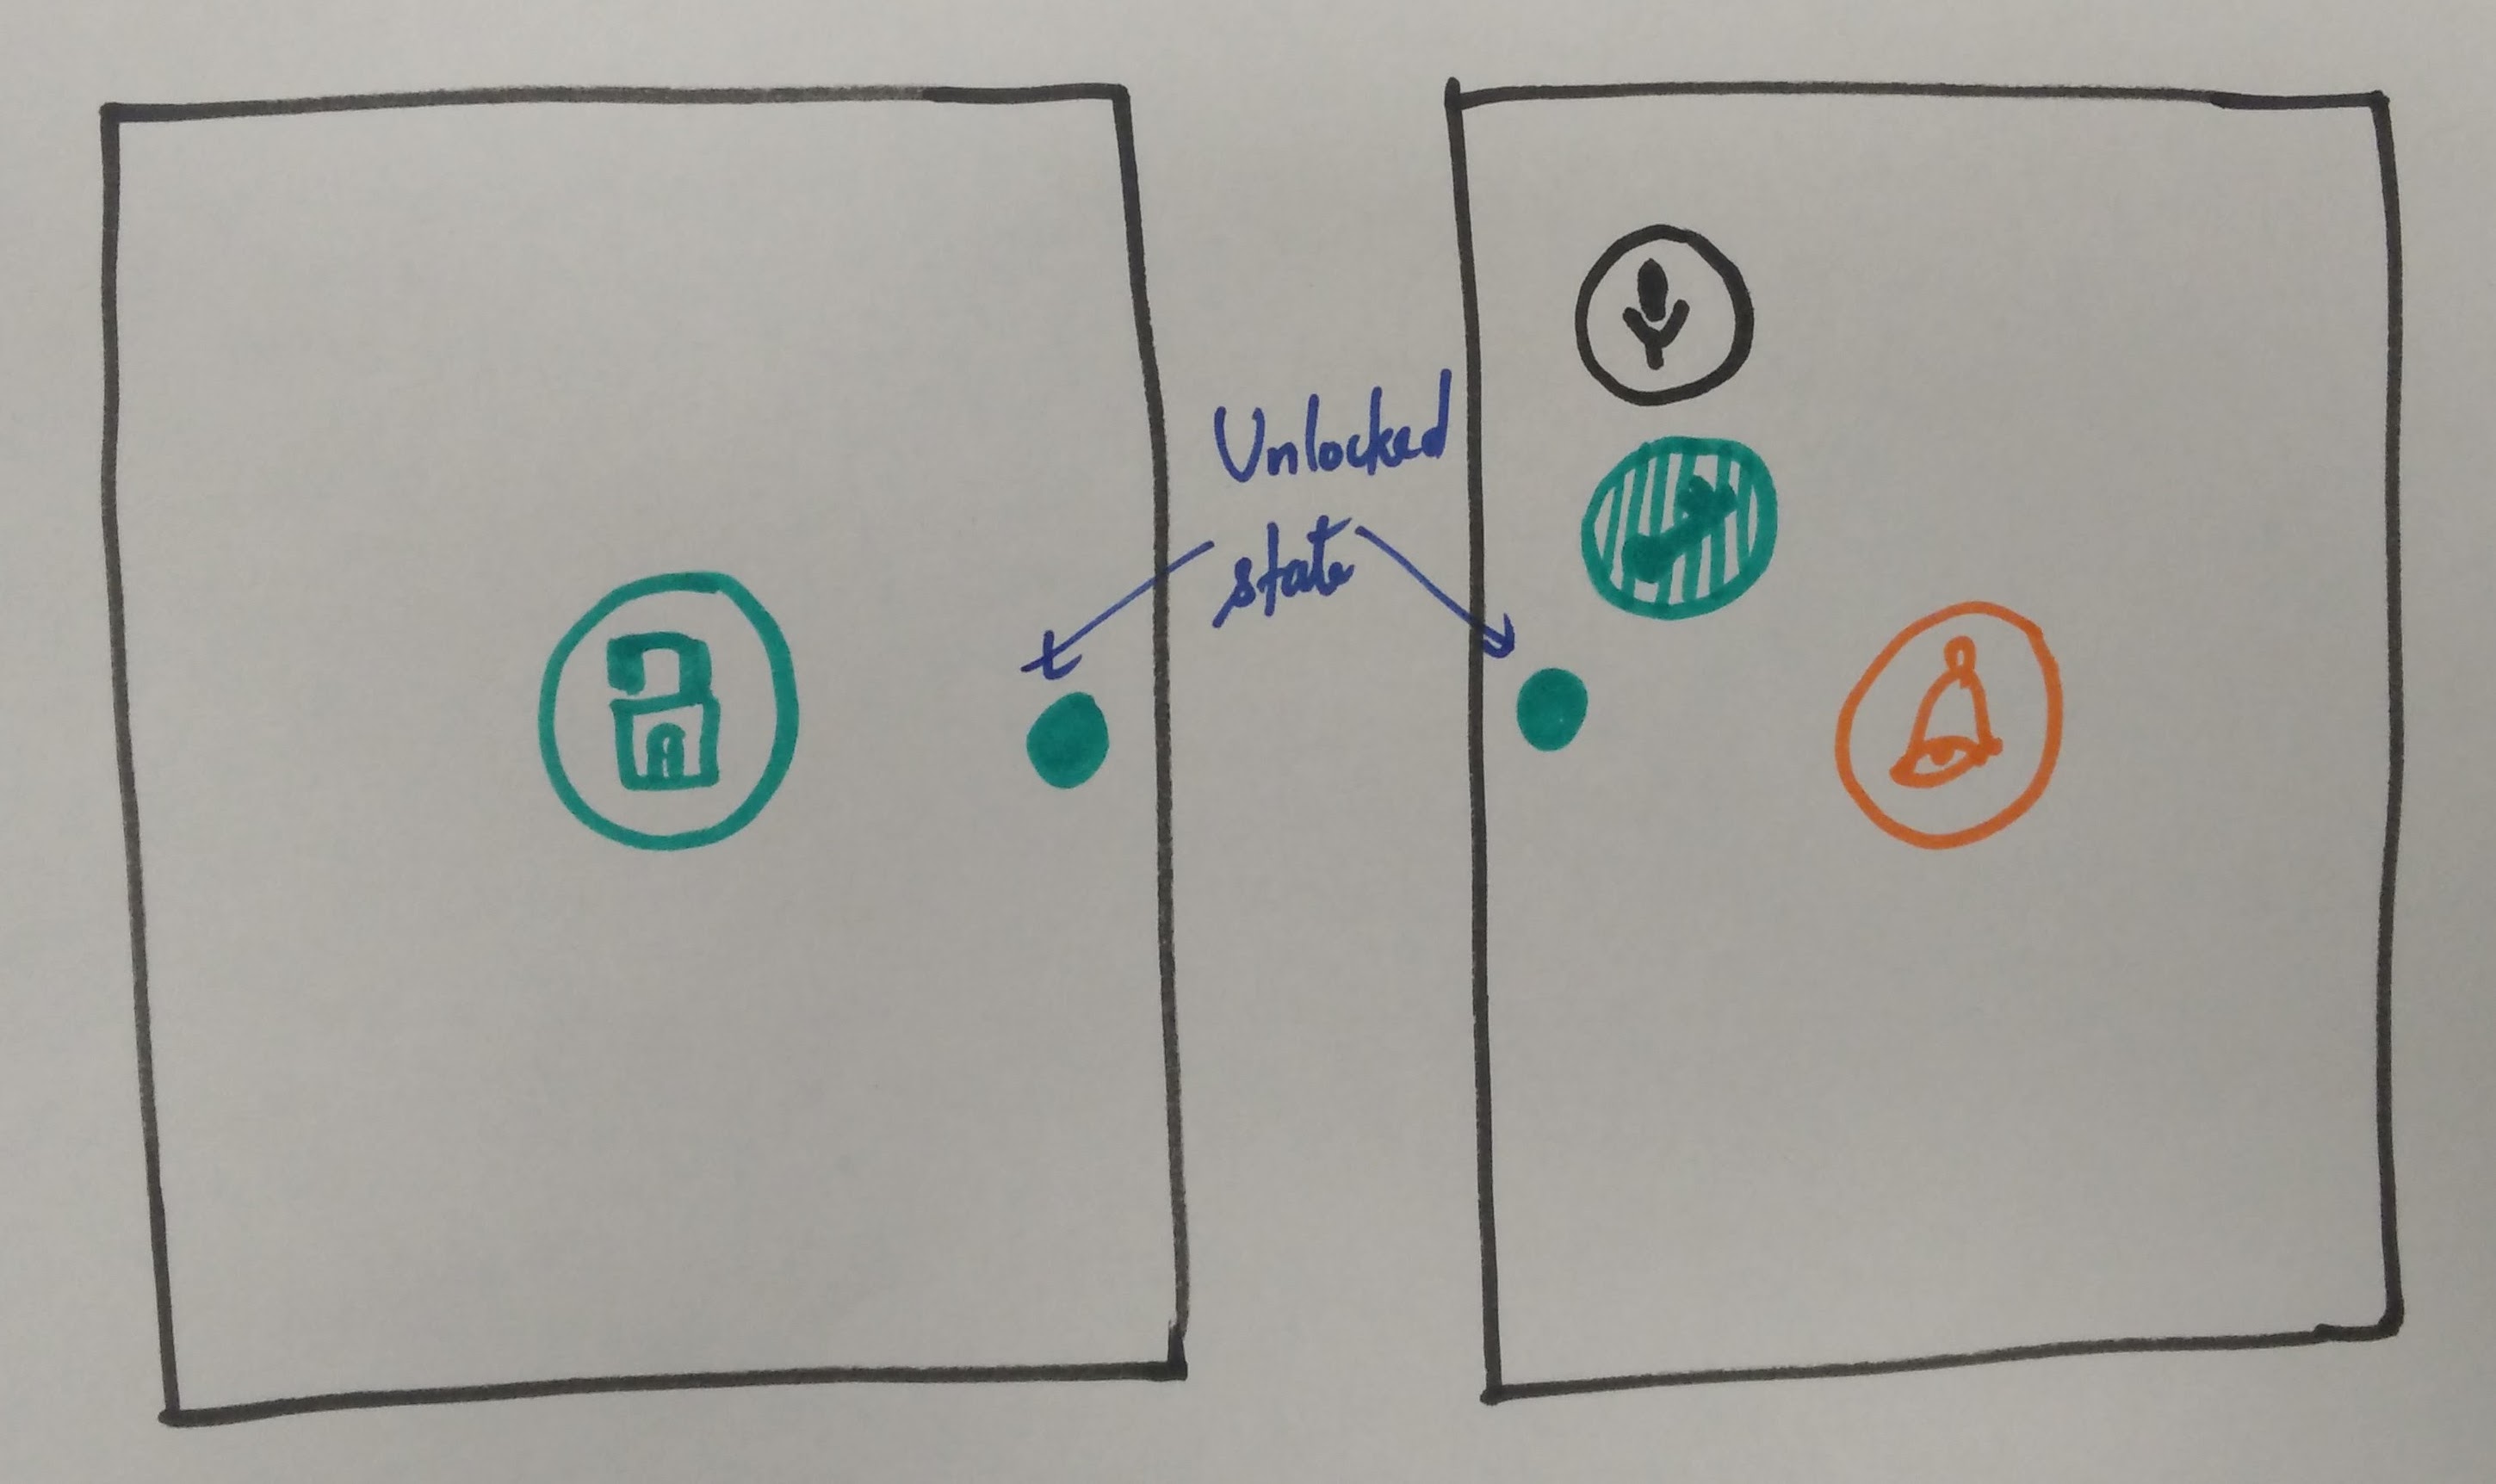 Unlocked
state